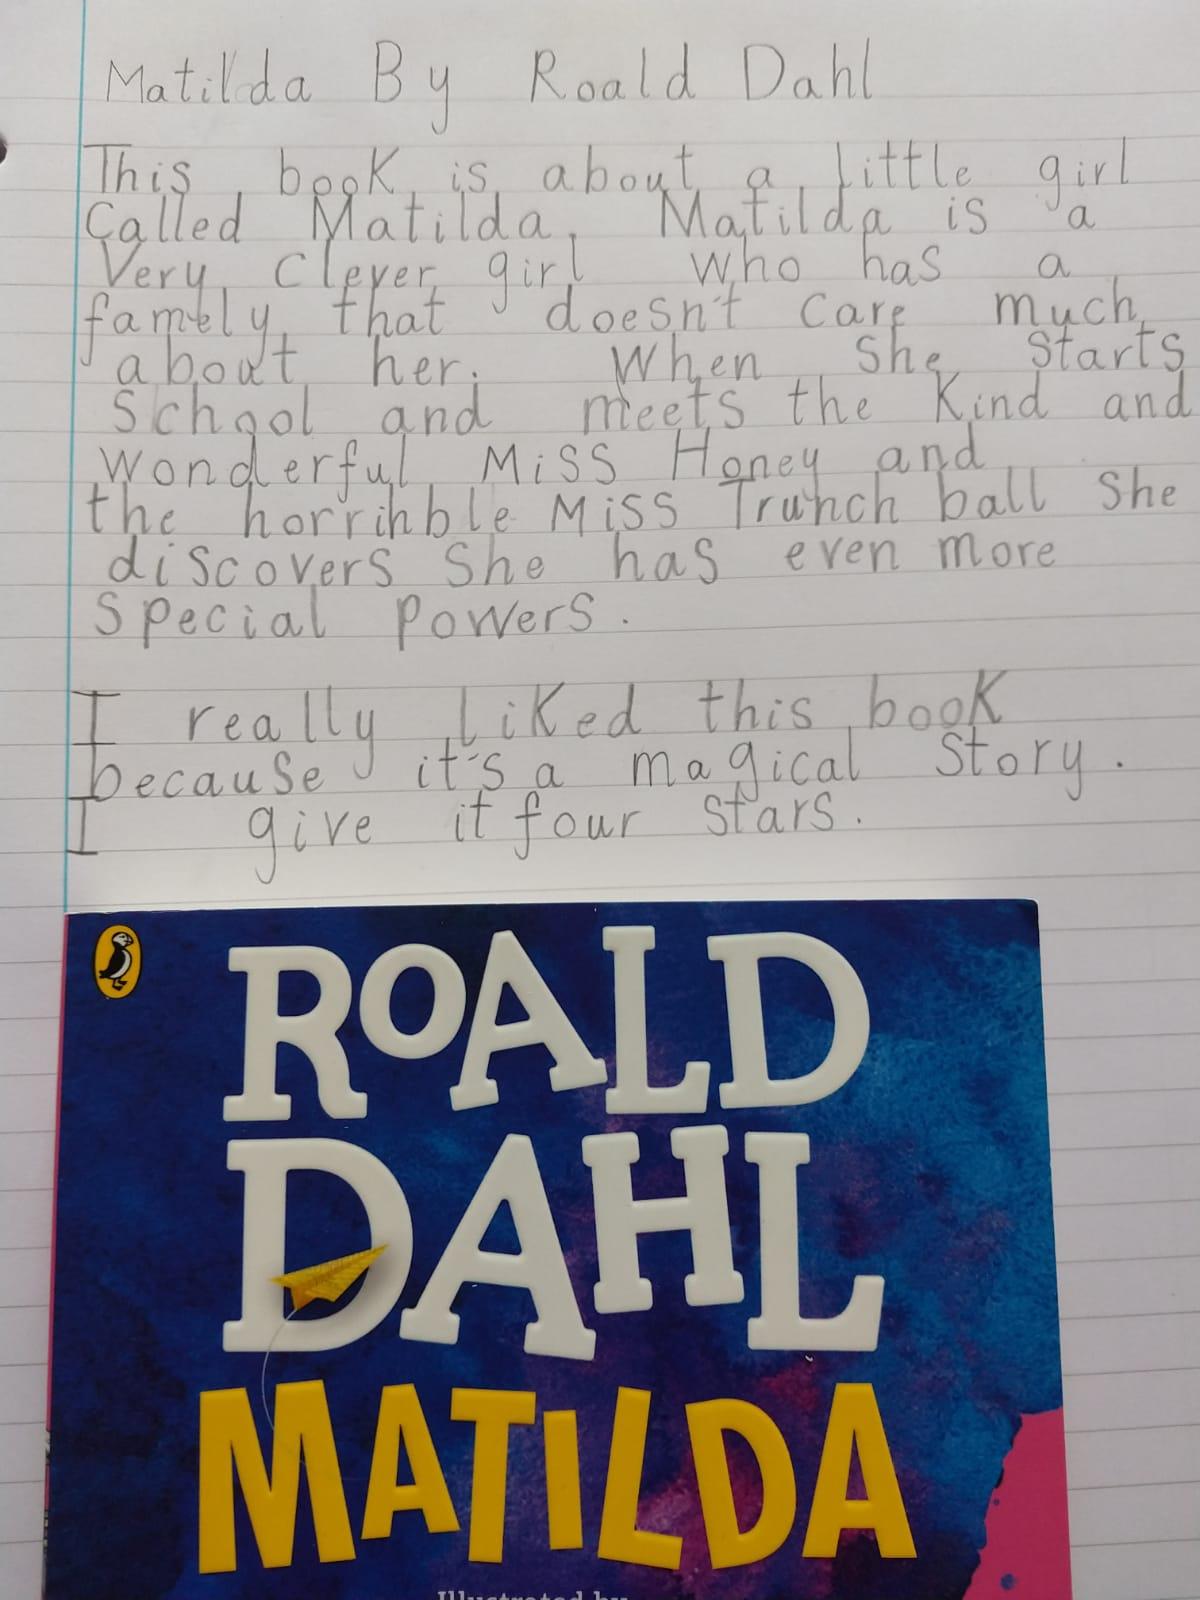 Matilda By Roald Dahl
This book is about a little girl
Called Matilda. Matilda is a
Very Clever girl who has a
famely that doesn't care much
about her. When she starts
School and meets the Kind and
wonderful Miss Honey and
the horrihble Miss Trunch ball She
discovers She has even more
special powers.
I really liked this book
because it's a magical Story.
I give it four stars.
ROALD
DAHL
MATILDA
Illustrated by